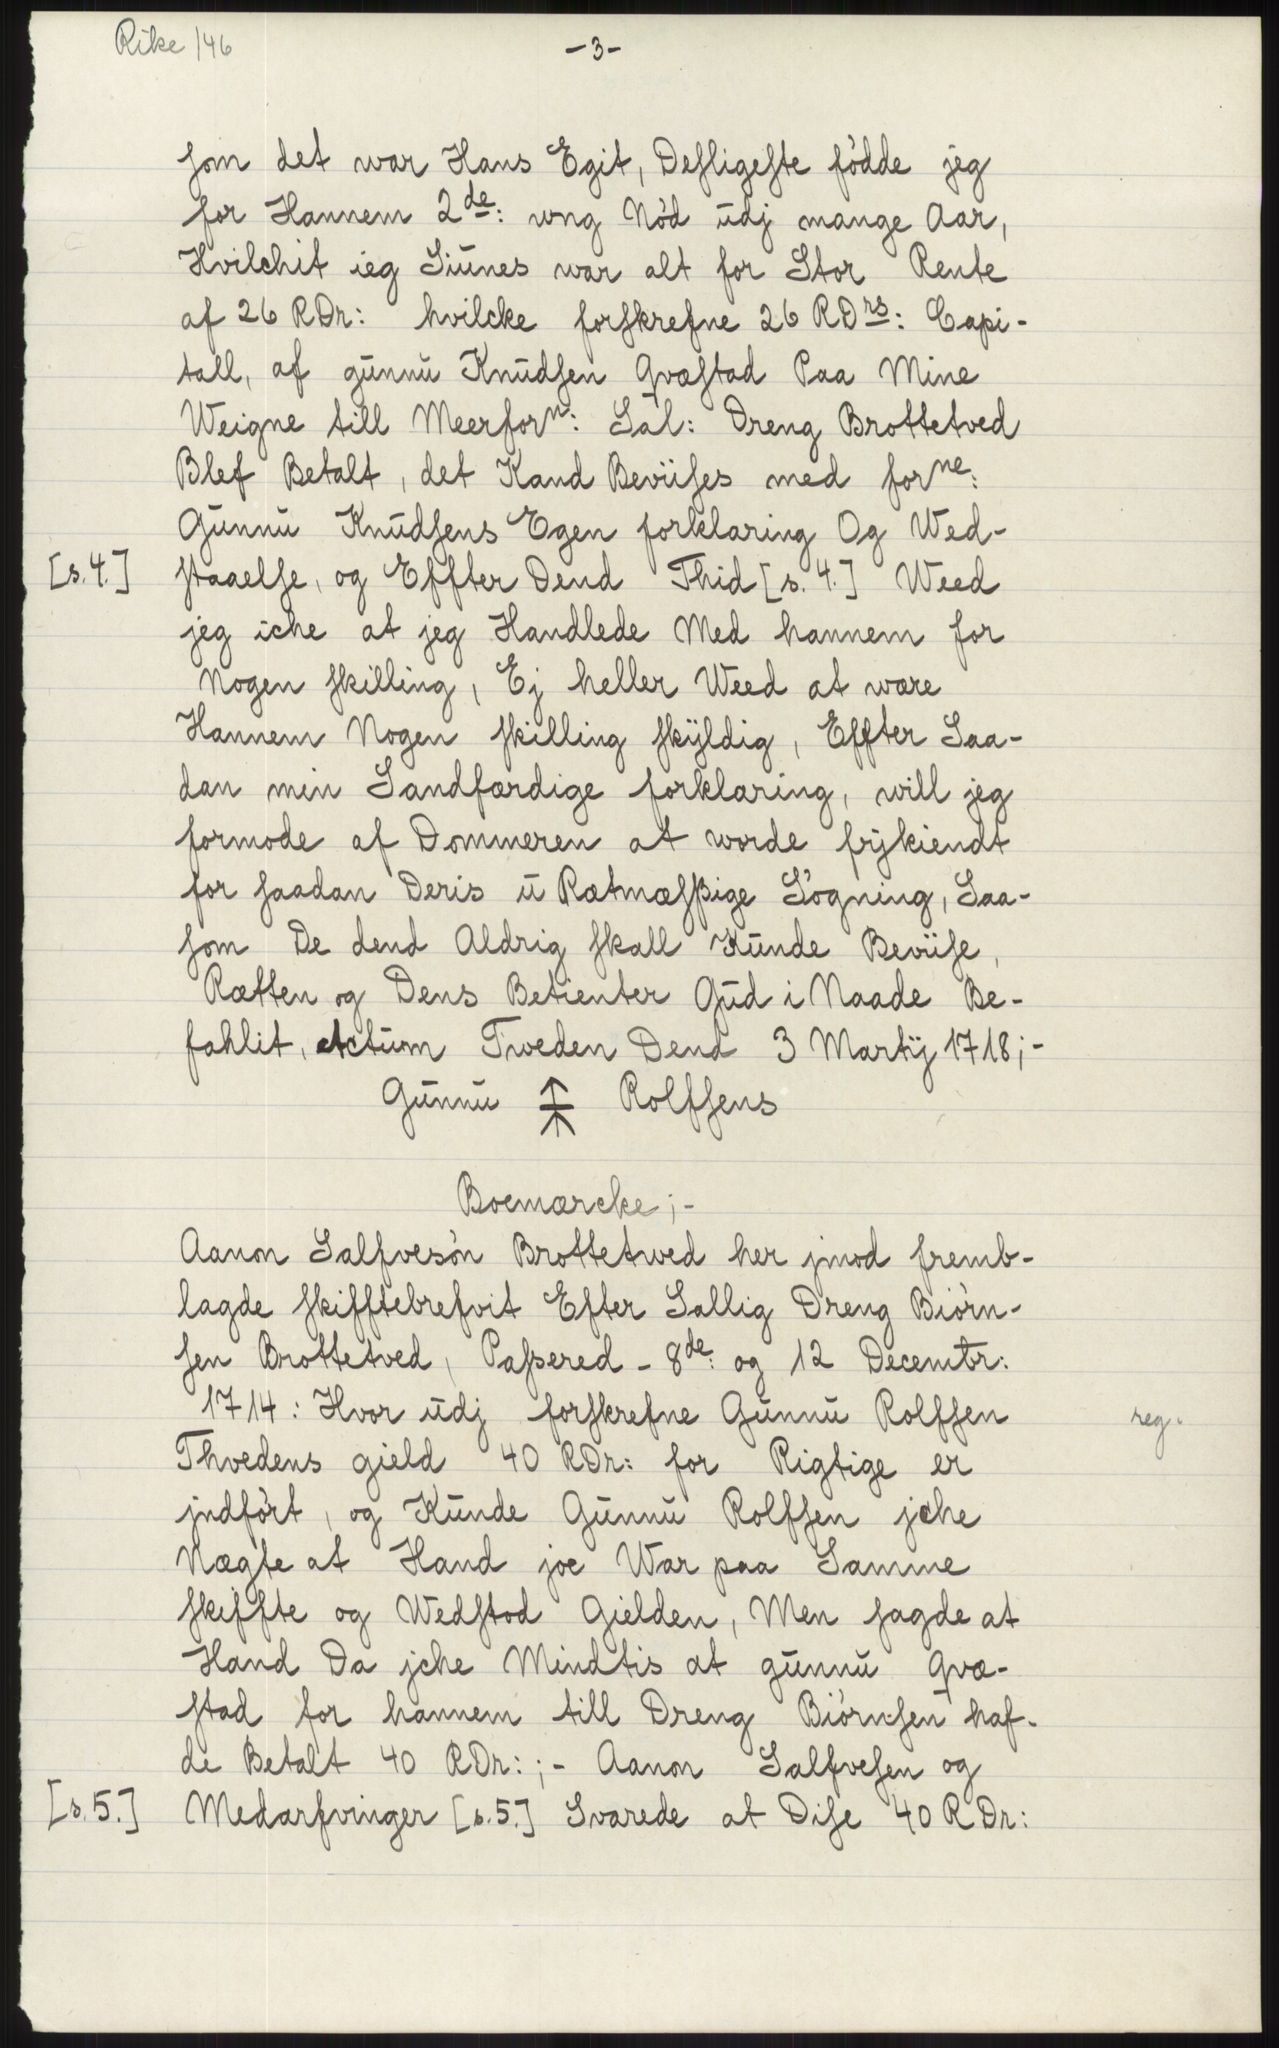 Rike 146
-3-
som det war Hans Egit, Desligeste fødde jeg
for Hannem 2de: ung Nød udj mange Aar,
Hvilchit ieg Siunes war alt for Stor Rente
af 26 RDr: hvilcke forskrefne 26 RDrs: Capi-
tall, af gunnu Knudsen Qvæstad Paa Mine
Weigne till Meerforn: Sal: Dreng Brottetved
Blef Betalt, det Kand Beviises med forne:
Gunnu Knudsens Egen forklaring Og Wed-
[s.4.] staaelse, og Effter Dend Thid [s. 4.] Weed
jeg iche at jeg Handlede Med hannem for
Nogen skilling, Ej heller Weed at være
Hannem Nogen skilling skÿldig, Effter Saa-
dan min Sandfærdige forklaring, will jeg
formode af Dommeren at worde frÿkiendt
for saadan Deris u Rætmæssige Søgning, Saa-
som De dend Aldrig skall Kunde Beviise,
Rætten og Dens Betienter Gud i Naade Be-
fahlit, Actum Tweden Dend 3 Martÿ 1718;-
Gunnu Rolfsens
Boemærcke;-
Aanon Salfvesøn Brottetwed her jmod fremb-
lagde skifftebrefvit Efter Sallig Dreng Biørn-
sen Brottetved, Passered - 8de: og 12 Decembr:
1714: Hvor udj forskrefne Gunnu Rolfsen reg.
Thvedens gield 40 RDr: for Rigtige er
jndført, og Kunde Gunnu Rolfsen jche
Nægte at Hand joe War paa Samme
skiffte og Wedstod Gielden, Men sagde at
Hand Da jche Mindtis at gunnu Qvæ-
stad for hannem till Dreng Biørnsen haf-
de Betalt 40 RDr:;- Aanon Salfvesen og
[s.5.] Medarfvinger [s.5.] Svarede at Dise 40 RDr: